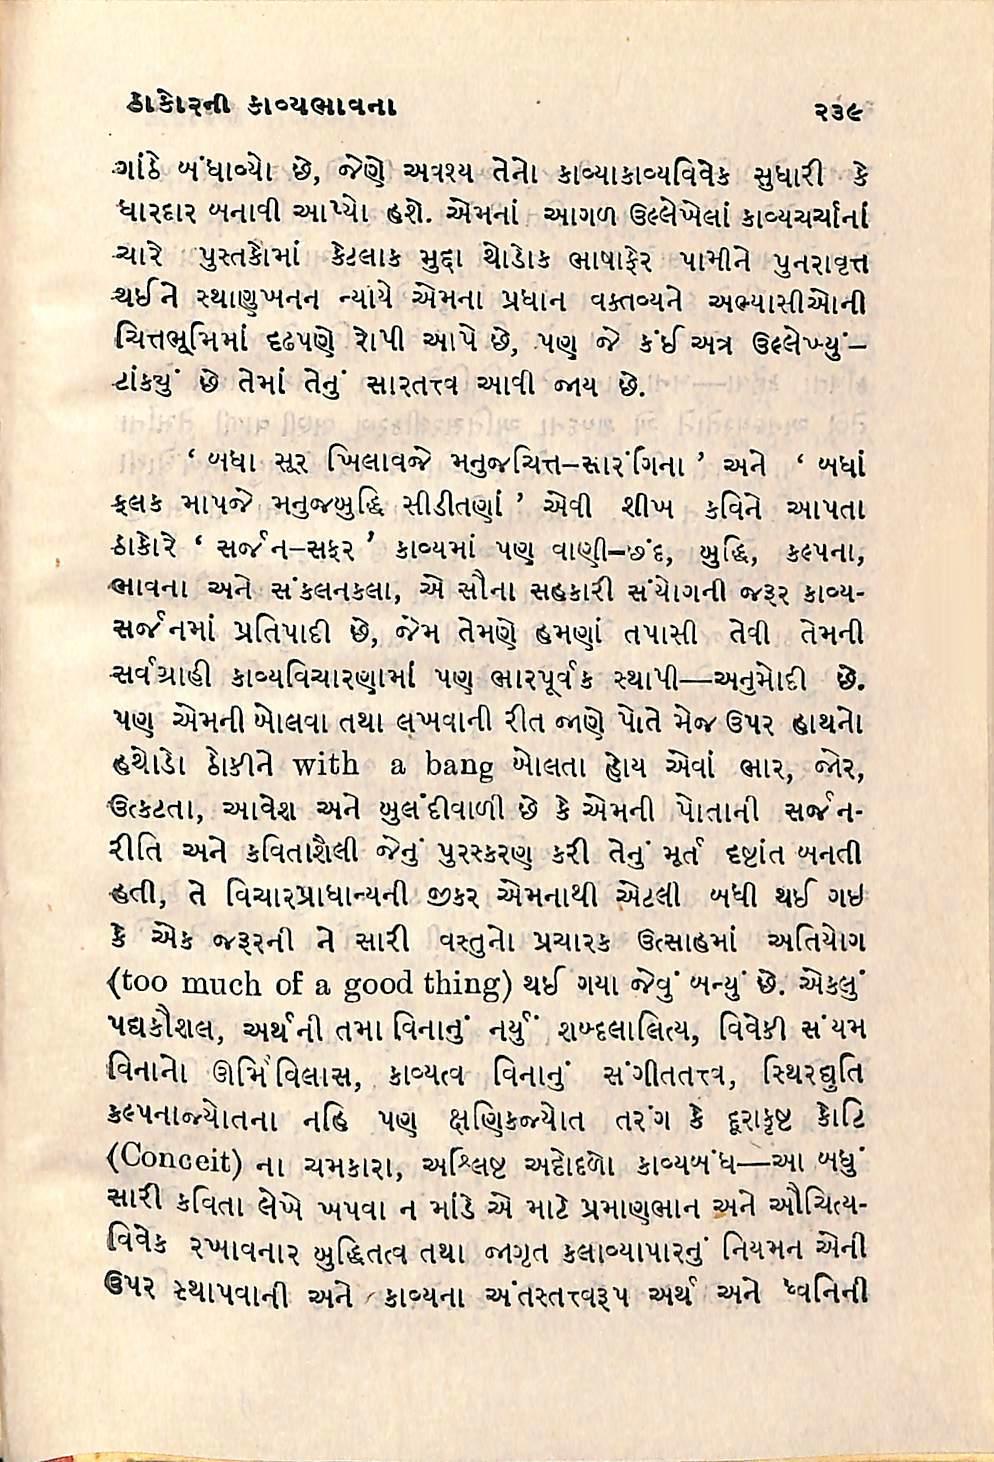 ઠાકોરની કાવ્યભાવના ૨૩૯
ગાંઠે બંધાવ્યો છે, જેણે અવશ્ય તેનો કાવ્યાકાવ્યવિવેક સુધારી કે
ધારદાર બનાવી આપ્યો હશે. એમનાં આગળ ઉલ્લેખેલાં કાવ્યચર્ચાનાં
ચારે પુસ્તકોમાં કેટલાક મુદ્દા થોડોક ભાષાફેર પામીને પુનરાવૃત્ત
થઈને સ્થાણુખનન ન્યાયે એમના પ્રધાન વક્તવ્યને અભ્યાસીઓની
ચિત્તભૂમિમાં દૃઢપણે રોપી આપે છે, પણ જે કંઈ અત્ર ઉલ્લેખ્યું–
ટાંક્યું છે તેમાં તેનું સારતત્ત્વ આવી જાય છે.
‘ બધા સૂર ખિલાવજે મનુજચિત્ત–સારંગિના ’ અને ‘ બધાં
ફલક માપજે મનુજબુદ્ધિ સીડીતણાં ’ એવી શીખ કવિને આપતા
ઠાકોરે ‘ સર્જન–સફર ’ કાવ્યમાં પણ વાણી–છંદ, બુદ્ધિ, કલ્પના,
ભાવના અને સંકલનકલા, એ સૌના સહકારી સંયોગની જરૂર કાવ્ય-
સર્જનમાં પ્રતિપાદી છે, જેમ તેમણે હમણાં તપાસી તેવી તેમની
સર્વગ્રાહી કાવ્યવિચારણામાં પણ ભારપૂર્વક સ્થાપી—અનુમોદી છે.
પણ એમની બોલવા તથા લખવાની રીત જાણે પોતે મેજ ઉપર હાથનો
હથોડો ઠોકીને with a bang બોલતા હોય એવાં ભાર, જોર,
ઉત્કટતા, આવેશ અને બુલંદીવાળી છે કે એમની પોતાની સર્જન-
રીતિ અને કવિતાશૈલી જેનું પુરસ્કરણ કરી તેનું મૂર્ત દૃષ્ટાંત બનતી
હતી, તે વિચારપ્રાધાન્યની જીકર એમનાથી એટલી બધી થઈ ગઇ
કે એક જરૂરની ને સારી વસ્તુનો પ્રચારક ઉત્સાહમાં અતિયોગ
(too much of a good thing) થઈ ગયા જેવું બન્યું છે. એકલું
પદ્યકૌશલ, અર્થની તમા વિનાનું નર્યું શબ્દલાલિત્ય, વિવેકી સંયમ
વિનાનો ઊર્મિવિલાસ, કાવ્યત્વ વિનાનું સંગીતતત્ત્વ, સ્થિરદ્યુતિ
કલ્પનાજ્યોતના નહિ પણ ક્ષણિકજ્યોત તરંગ કે દૂરાકૃષ્ટ કોટિ
(Conceit) ના ચમકારા, અશ્લિષ્ટ અદોદળો કાવ્યબંધ—આ બધું
સારી કવિતા લેખે ખપવા ન માંડે એ માટે પ્રમાણભાન અને ઔચિત્ય-
વિવેક રખાવનાર બુદ્ધિતત્વ તથા જાગૃત કલાવ્યાપારનું નિયમન એની
ઉપર સ્થાપવાની અને કાવ્યના અંતસ્તત્ત્વરૂપ અર્થ અને ધ્વનિની